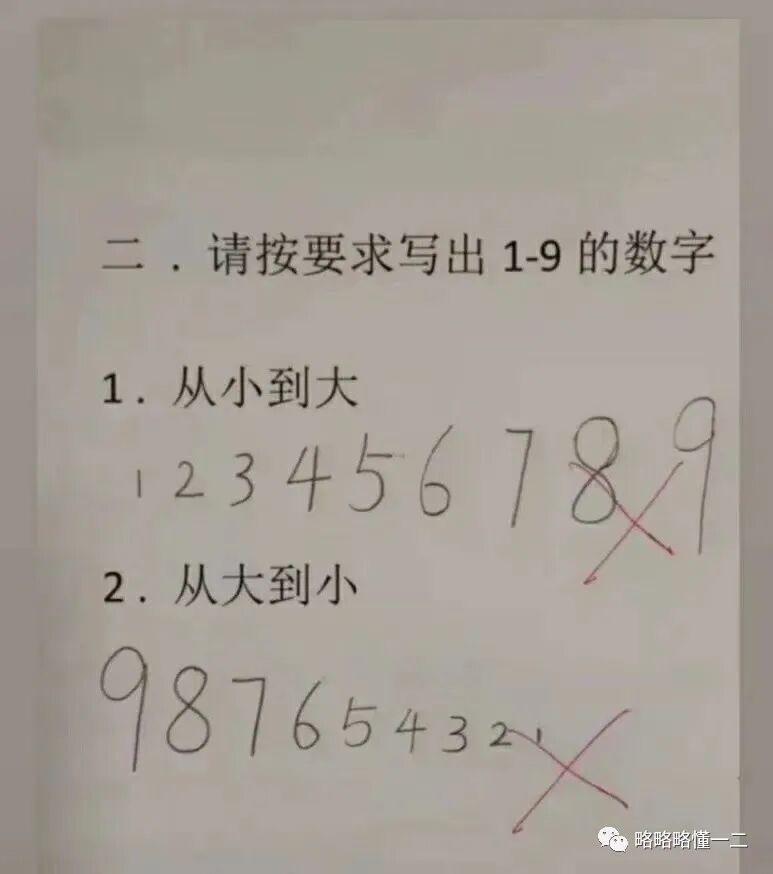 二．请按要求写出 1-9 的数字
1．从小到大
1 2 3 4 5 6 7 8 9
2．从大到小
9 8 7 6 5 4 3 2 1
略略略懂一二